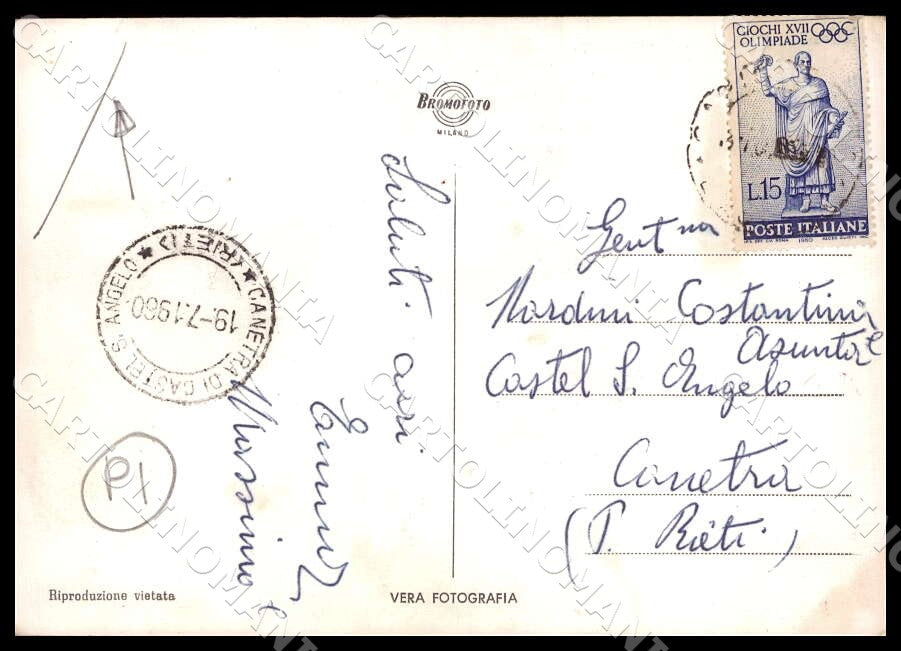 GIOCHI XVII
OLIMPIADE
L.15
POSTE ITALIANE
1960
BROMOFOTO
MILANO
Saluti cari
Massimo e
Gent ma
Nardini Costantina
e
Asunta
Castel S. Angelo
Canetra
(P. Rieti)
★ CANETRA DI CASTEL S. ANGELO ★
(RIETI)
19-7.1960
Riproduzione vietata
VERA FOTOGRAFIA
CARTOLINOMANIA